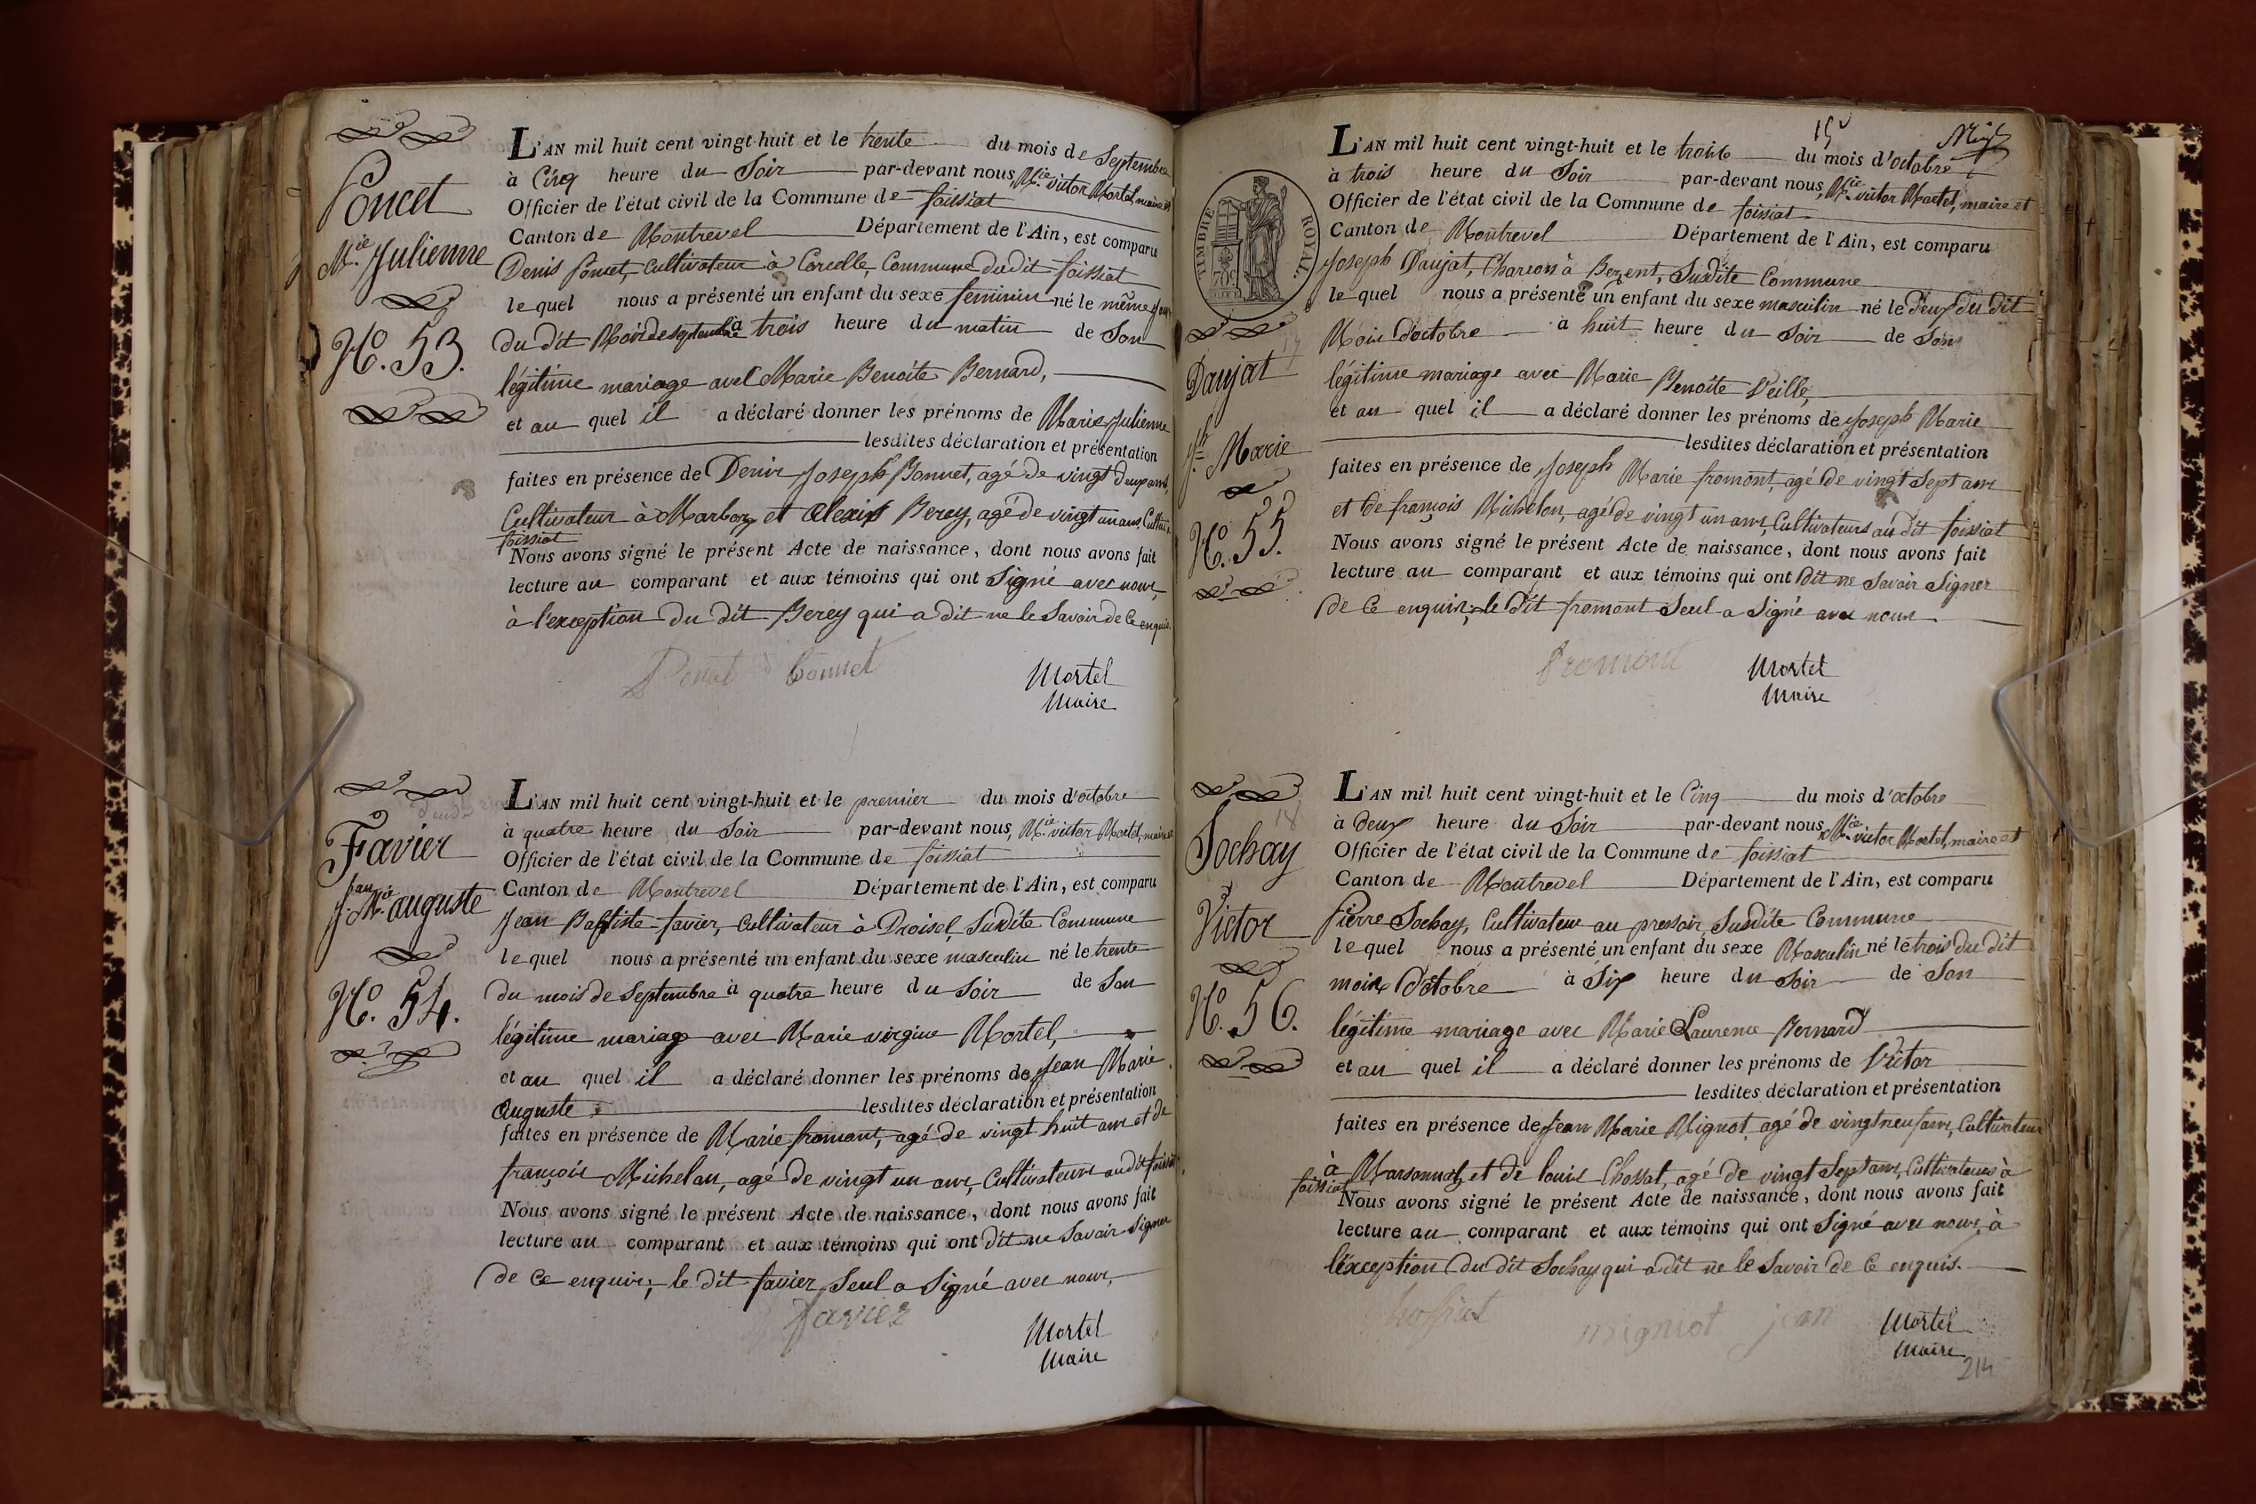 Poncet
M.ie Julienne
N.o 53.
L'AN mil huit cent vingt-huit et le trente du mois de Septembre
à Cinq heure du Soir par-devant nous M.ie victor Mortel, maire et
Officier de l'état civil de la Commune de foissiat
Canton de Montrevel Département de l'Ain, est comparu
Denis Poncet, Cultivateur à Corcelle, Commune dudit foissiat
lequel nous a présenté un enfant du sexe feminin né le même jour
du dit Mois de septembre à trois heure du matin de Son
légitime mariage avec Marie Benoite Bernard,
et au quel il a déclaré donner les prénoms de Marie Julienne
lesdites déclaration et présentation
faites en présence de Denis Joseph Bonnet, agé de vingt deux ans,
Cultivateur à Marboz et Alexis Berey, agé de vingt un ans, Cultivr.
foissiat
Nous avons signé le présent Acte de naissance, dont nous avons fait
lecture au comparant et aux témoins qui ont Signé avec nous,
à l'exception du dit Berey qui a dit ne le Savoir de Ce enquis.
Bonnet
Mortel
Maire
Favier
j.n M.ie auguste
N.o 54.
L'AN mil huit cent vingt-huit et le premier du mois d'octobre
à quatre heure du Soir par-devant nous, M.ie victor Mortel, maire et
Officier de l'état civil de la Commune de foissiat
Canton de Montrevel Département de l'Ain, est comparu
Jean Baptiste favier, Cultivateur à Droisel, Susdite Commune
lequel nous a présenté un enfant du sexe masculin né le trente
du mois de Septembre à quatre heure du Soir de Son
légitime mariage avec Marie virginie Mortel,
et au quel il a déclaré donner les prénoms de Jean Marie
Auguste lesdites déclaration et présentation
faites en présence de Marie fromont, agé de vingt huit ans et de
françois Michelon, agé de vingt un ans, Cultivateurs au dit foissiat
Nous avons signé le présent Acte de naissance, dont nous avons fait
lecture au comparant et aux témoins qui ont dit ne Savoir Signer
de Ce enquis; le dit favier Seul a Signé avec nous,
favier
Mortel
Maire
TIMBRE ROYAL.
Daujat
J.h Marie
N.o 55.
L'AN mil huit cent vingt-huit et le trois du mois d'octobre
à trois heure du Soir par-devant nous, M.ie victor Mortel, maire et
Officier de l'état civil de la Commune de foissiat
Canton de Montrevel Département de l'Ain, est comparu
Joseph Daujat, Charron à Bezent, Susdite Commune
lequel nous a présenté un enfant du sexe masculin né le deux du dit
Mois d'octobre à huit heure du Soir de Son
légitime mariage avec Marie Benoite Veille,
et au quel il a déclaré donner les prénoms de Joseph Marie
lesdites déclaration et présentation
faites en présence de Joseph Marie fromont, agé de vingt Sept ans
et de françois Michelon, agé de vingt un ans, Cultivateurs au dit foissiat
Nous avons signé le présent Acte de naissance, dont nous avons fait
lecture au comparant et aux témoins qui ont dit ne Savoir Signer
de Ce enquis; le dit fromont Seul a Signé avec nous
fromont
Mortel
Maire
Sochay
Victor
N.o 56.
L'AN mil huit cent vingt-huit et le Cinq du mois d'octobre
à deux heure du Soir par-devant nous, M.ie victor Mortel, maire et
Officier de l'état civil de la Commune de foissiat
Canton de Montrevel Département de l'Ain, est comparu
Pierre Sochay, Cultivateur au pressoir, Susdite Commune
lequel nous a présenté un enfant du sexe Masculin né le trois du dit
mois d'octobre à Six heure du Soir de Son
légitime mariage avec Marie Laurence Bernard
et au quel il a déclaré donner les prénoms de Victor
lesdites déclaration et présentation
faites en présence de Jean Marie Mignot, agé de vingt neuf ans, Cultivateur
à Marsonnas, et de louis Chossat, agé de vingt Sept ans, Cultivateurs à
foissiat
Nous avons signé le présent Acte de naissance, dont nous avons fait
lecture au comparant et aux témoins qui ont Signé avec nous, à
l'éxception du dit Sochay qui a dit ne le Savoir de Ce enquis.
mignot jean
Mortel
Maire
214